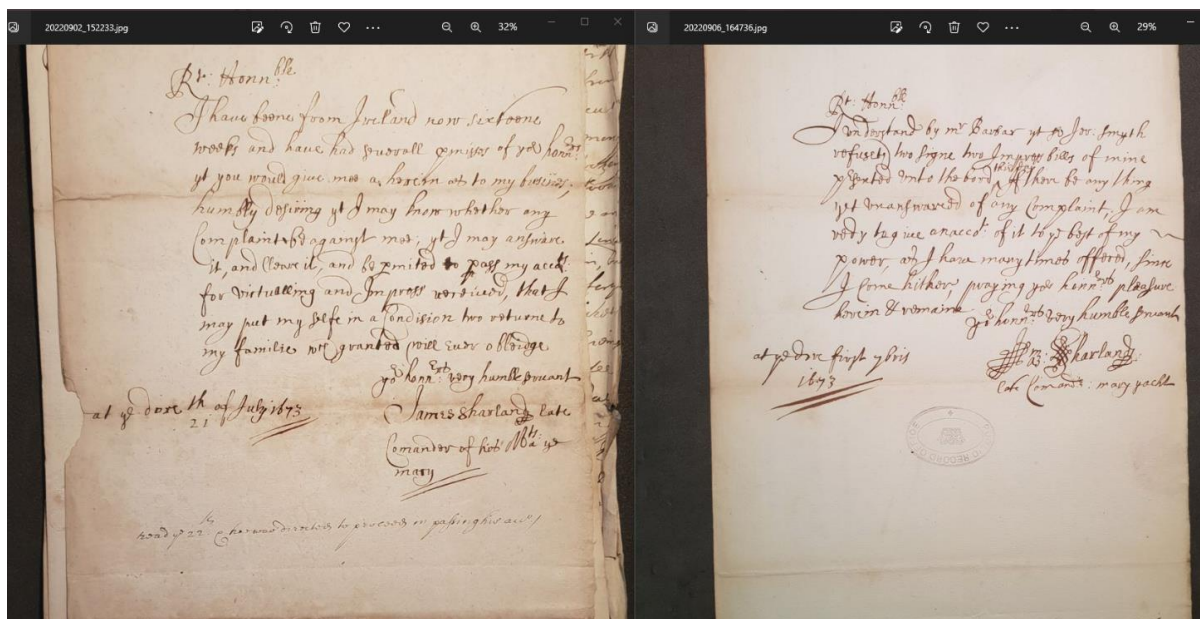 20220902_152233.jpg
32%
Rt: Honn:ble
I have beene from Ireland now sixteene
weeks and have had severall pmises of yor honn:rs
yt you would give mee a herein as to my busines,
humbly desiring yt I may know whether any
Complaint be against mee, yt I may answare
it, and Cleare it, and be pmited to pass my acct:
for victualling and Impress received, that I
may put my selfe in a Condision two returne to
my familie wch granted will Ever obleidge
yor honn:rs very humble servant
James Sharland late
Comander of his Ma:ts ye
mary
at ye dore 21th of July 1673
read ye 22th he was directed to proceed in passing his acct
20220906_164736.jpg
29%
Rt: Honn:ble
I understand by mr Barbar yt Sr Jer: Smyth
refuseth two signe two Impress bills of mine
psented unto the bord this day If there be any thing
yet unanswared of any Complaint, I am
redy to give an acct. of it to ye best of my
power, as I have many times offered, since
I Come hither, praying yor honn:rs pleasure
herein & remaine
yor honn:rs very humble servant
Sharland:
late Comandr: mary yacht
at ye dore first 7bris
1673